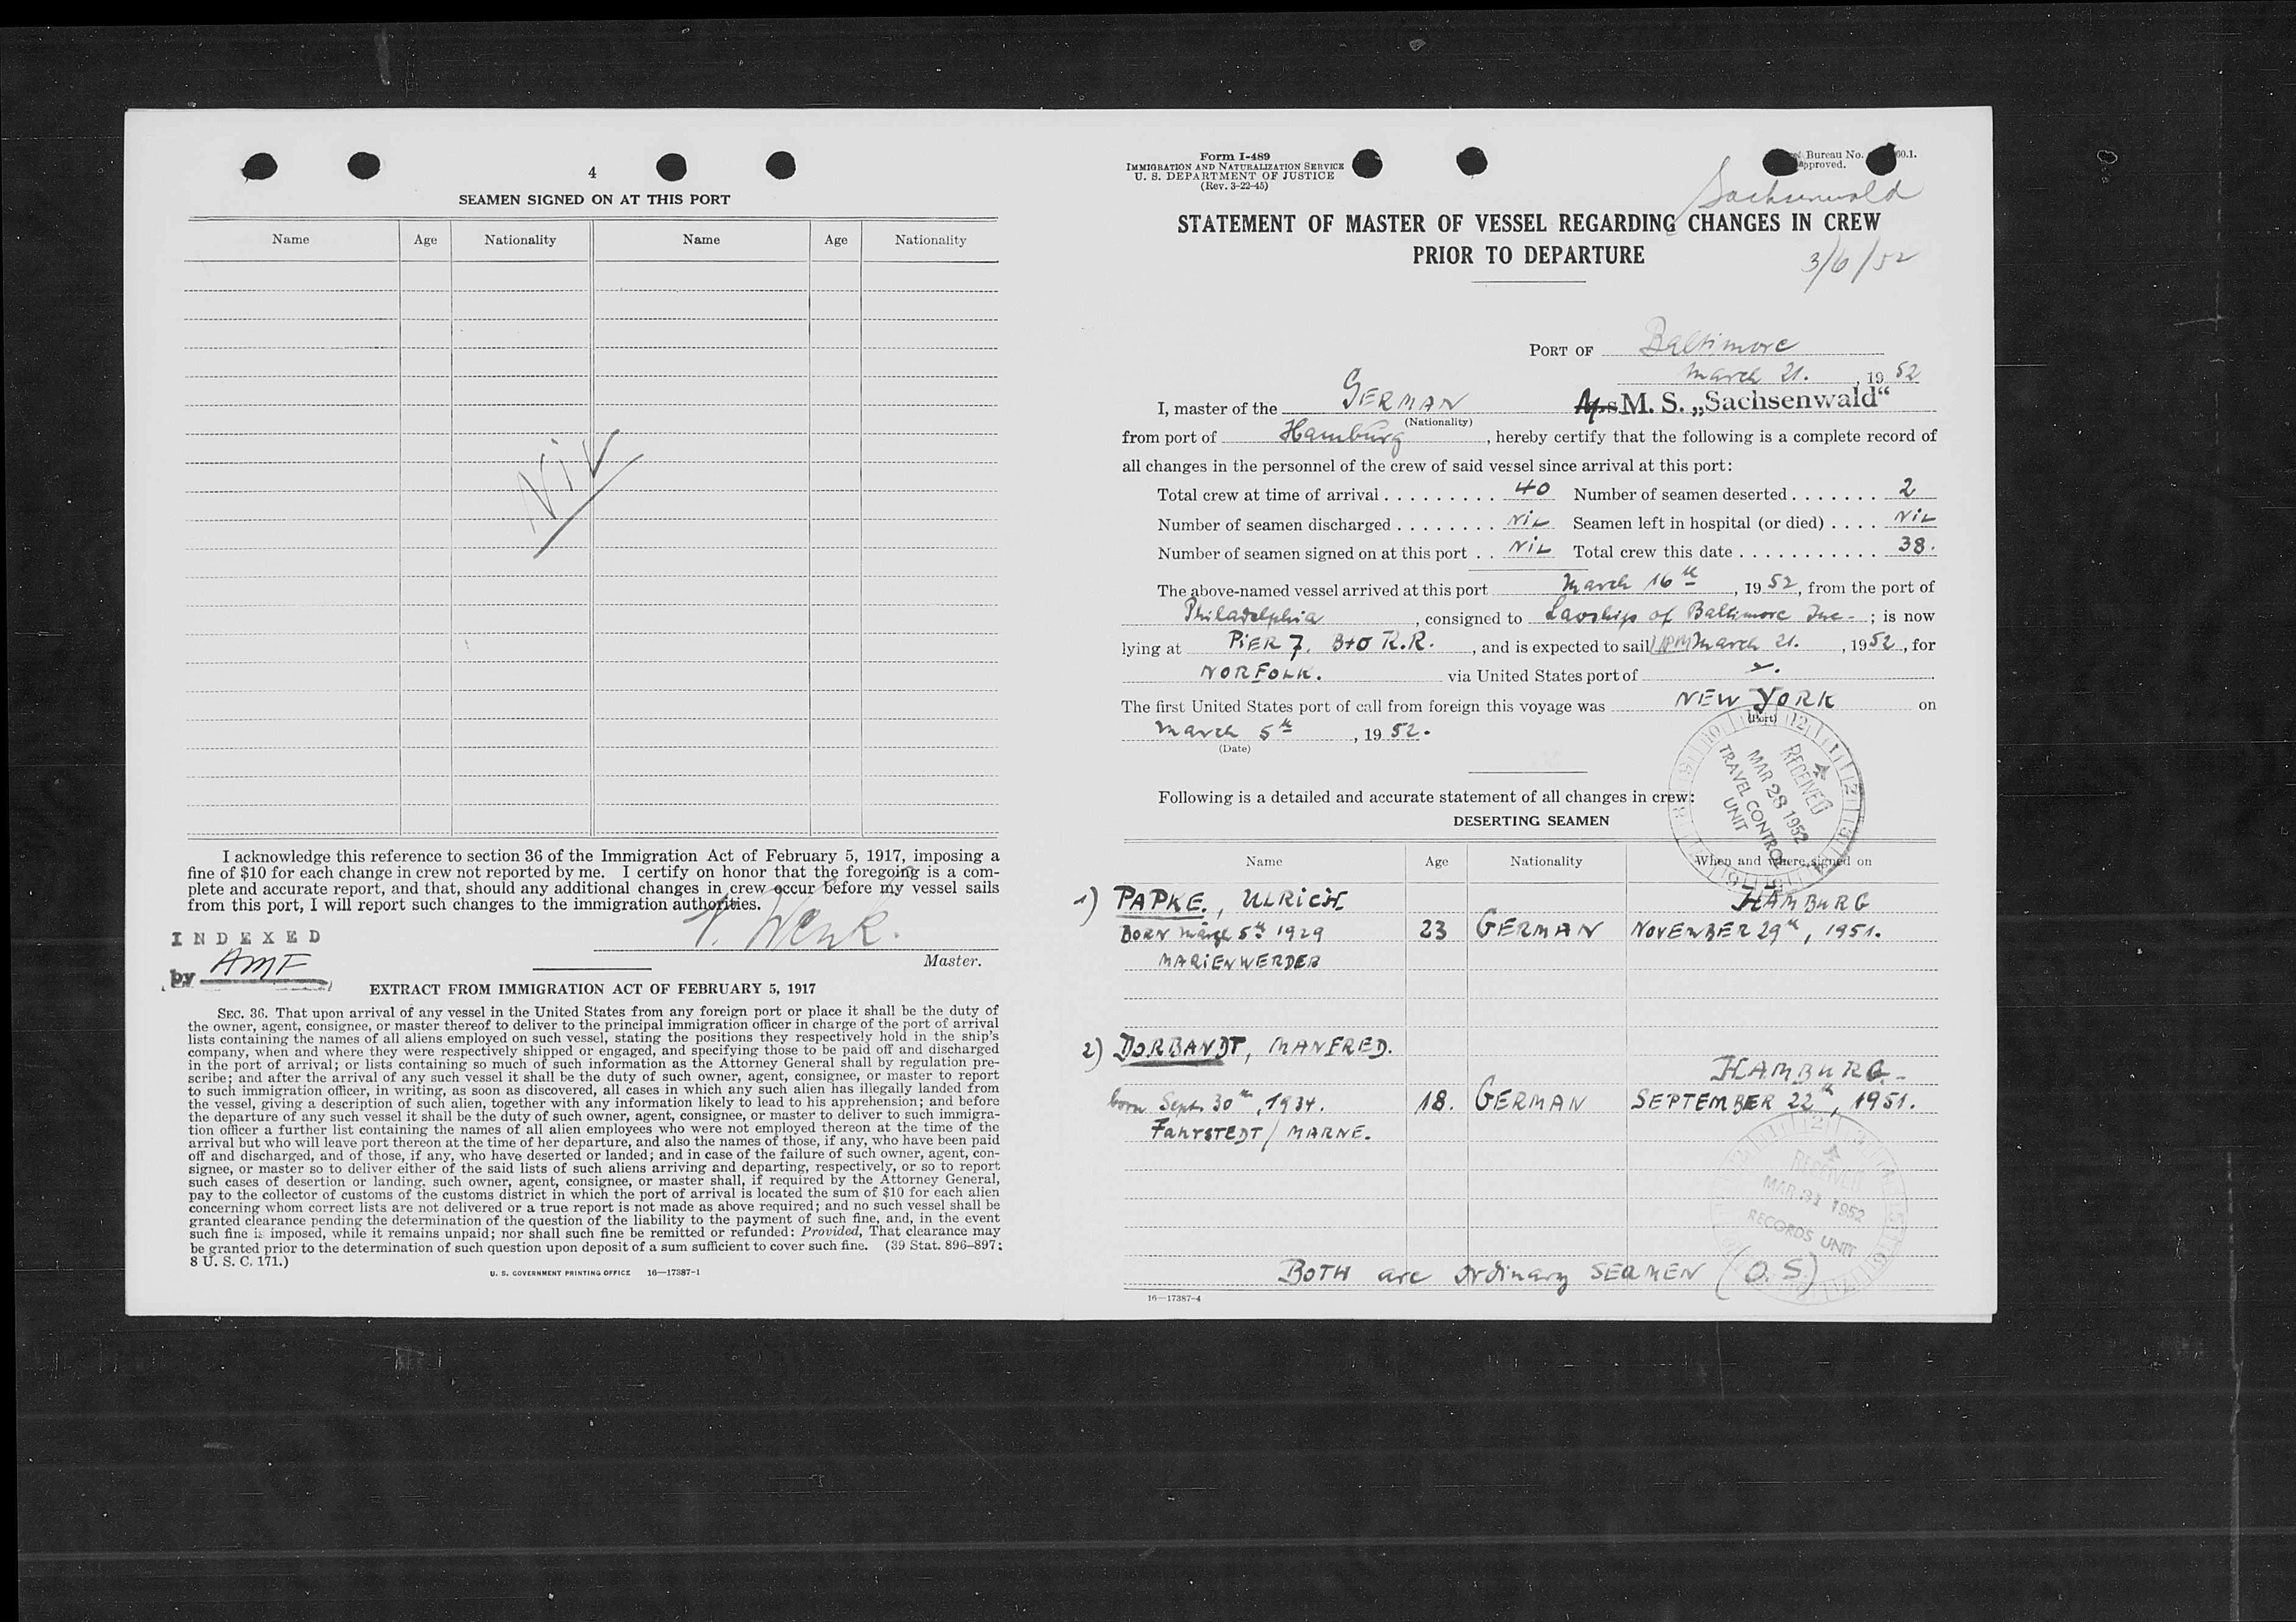 4
SEAMEN SIGNED ON AT THIS PORT
Name Age Nationality Name Age Nationality
NiL
I acknowledge this reference to section 36 of the Immigration Act of February 5, 1917, imposing a
fine of $10 for each change in crew not reported by me. I certify on honor that the foregoing is a com-
plete and accurate report, and that, should any additional changes in crew occur before my vessel sails
from this port, I will report such changes to the immigration authorities.
INDEXED
by AMF
Master.
EXTRACT FROM IMMIGRATION ACT OF FEBRUARY 5, 1917
SEC. 36. That upon arrival of any vessel in the United States from any foreign port or place it shall be the duty of
the owner, agent, consignee, or master thereof to deliver to the principal immigration officer in charge of the port of arrival
lists containing the names of all aliens employed on such vessel, stating the positions they respectively hold in the ship's
company, when and where they were respectively shipped or engaged, and specifying those to be paid off and discharged
in the port of arrival; or lists containing so much of such information as the Attorney General shall by regulation pre-
scribe; and after the arrival of any such vessel it shall be the duty of such owner, agent, consignee, or master to report
to such immigration officer, in writing, as soon as discovered, all cases in which any such alien has illegally landed from
the vessel, giving a description of such alien, together with any information likely to lead to his apprehension; and before
the departure of any such vessel it shall be the duty of such owner, agent, consignee, or master to deliver to such immigra-
tion officer a further list containing the names of all alien employees who were not employed thereon at the time of the
arrival but who will leave port thereon at the time of her departure, and also the names of those, if any, who have been paid
off and discharged, and of those, if any, who have deserted or landed; and in case of the failure of such owner, agent, con-
signee, or master so to deliver either of the said lists of such aliens arriving and departing, respectively, or so to report
such cases of desertion or landing, such owner, agent, consignee, or master shall, if required by the Attorney General,
pay to the collector of customs of the customs district in which the port of arrival is located the sum of $10 for each alien
concerning whom correct lists are not delivered or a true report is not made as above required; and no such vessel shall be
granted clearance pending the determination of the question of the liability to the payment of such fine, and, in the event
such fine is imposed, while it remains unpaid; nor shall such fine be remitted or refunded: Provided, That clearance may
be granted prior to the determination of such question upon deposit of a sum sufficient to cover such fine. (39 Stat. 896–897;
8 U. S. C. 171.)
U. S. GOVERNMENT PRINTING OFFICE 16—17387-1
Form I-489
IMMIGRATION AND NATURALIZATION SERVICE
U. S. DEPARTMENT OF JUSTICE
(Rev. 3-22-45)
Bureau No. 60.1.
approved.
Sachsenwald
STATEMENT OF MASTER OF VESSEL REGARDING CHANGES IN CREW
PRIOR TO DEPARTURE
3/6/52
PORT OF Baltimore
March 21. , 19 52
I, master of the GERMAN M. S. „Sachsenwald“
(Nationality)
from port of Hamburg , hereby certify that the following is a complete record of
all changes in the personnel of the crew of said vessel since arrival at this port:
Total crew at time of arrival . . . . . . . . . 40 Number of seamen deserted . . . . . . . 2
Number of seamen discharged . . . . . . . . NiL Seamen left in hospital (or died) . . . . NiL
Number of seamen signed on at this port . . NiL Total crew this date . . . . . . . . . . . 38.
The above-named vessel arrived at this port March 16th , 19 52, from the port of
Philadelphia , consigned to of Baltimore Inc. ; is now
lying at PiER 7. B+O R.R. , and is expected to sail March 21. , 1952, for
NORFOLK. via United States port of
The first United States port of call from foreign this voyage was NEW YORK on
(Port)
March 5th , 19 52.
(Date)
RECEIVED
MAR 28 1952
TRAVEL CONTROL
UNIT
Following is a detailed and accurate statement of all changes in crew:
DESERTING SEAMEN
Name Age Nationality When and where signed on
1) PAPKE., ULRICH. HAMBURG
BORN März 5th 1929 23 GERMAN NOVEMBER 29th, 1951.
MARiENWERDER
2) DORBANDT, MANFRED.
HAMBURG.
born Sept. 30th, 1934. 18. GERMAN SEPTEMBER 22th, 1951.
FahrSTEDT / MARNE.
RECEIVED
MAR 31 1952
RECORDS UNIT
BOTH are ordinary SEAMEN (O. S.)
16—17387-4